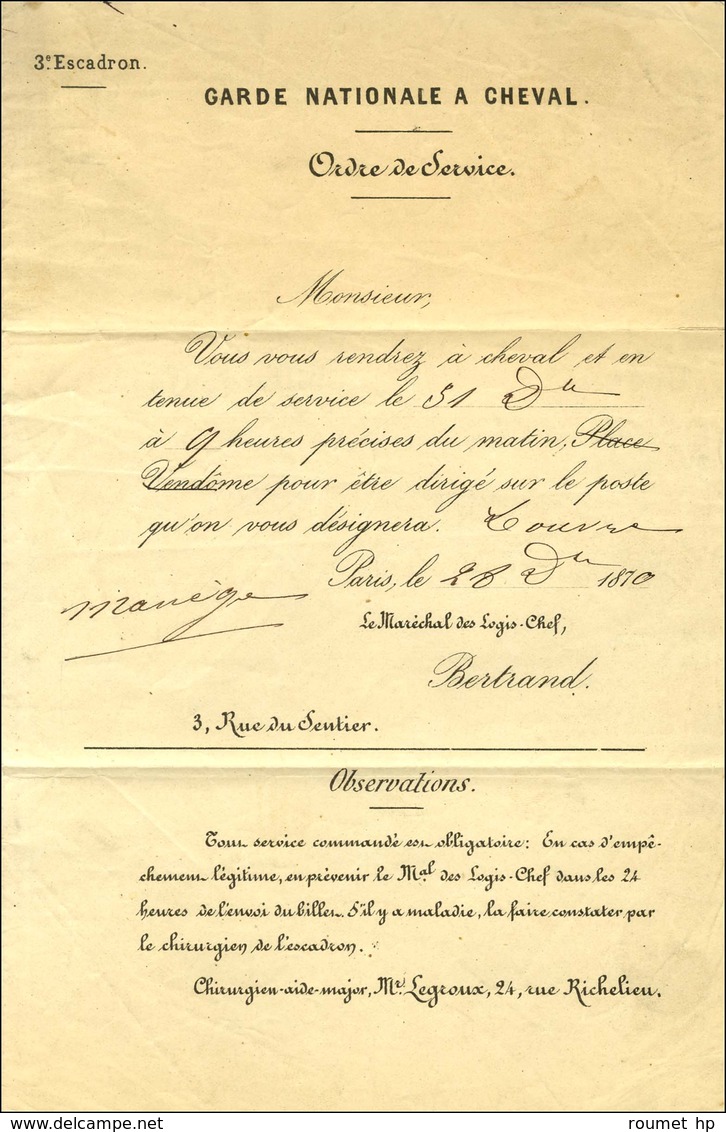 3e. Escadron.
GARDE NATIONALE A CHEVAL.
Ordre de Service.
Monsieur,
Vous vous rendrez à cheval et en
tenue de service le 31 Dre
à 9 heures précises du matin, Place
Vendôme pour être dirigé sur le poste
qu'on vous désignera. Louvre
Paris, le 28 Dre 1870
manège
Le Maréchal des Logis-Chef,
Bertrand.
3, Rue du Sentier.
Observations.
Tout service commandé est obligatoire: En cas d'empê-
chement légitime, en prévenir le Mal des Logis-Chef dans les 24
heures de l'envoi du billet. S'il y a maladie, la faire constater par
le chirurgien de l'escadron.
Chirurgien-aide-major, Mr. Legroux, 24, rue Richelieu.
delcampe.net
roumet hp